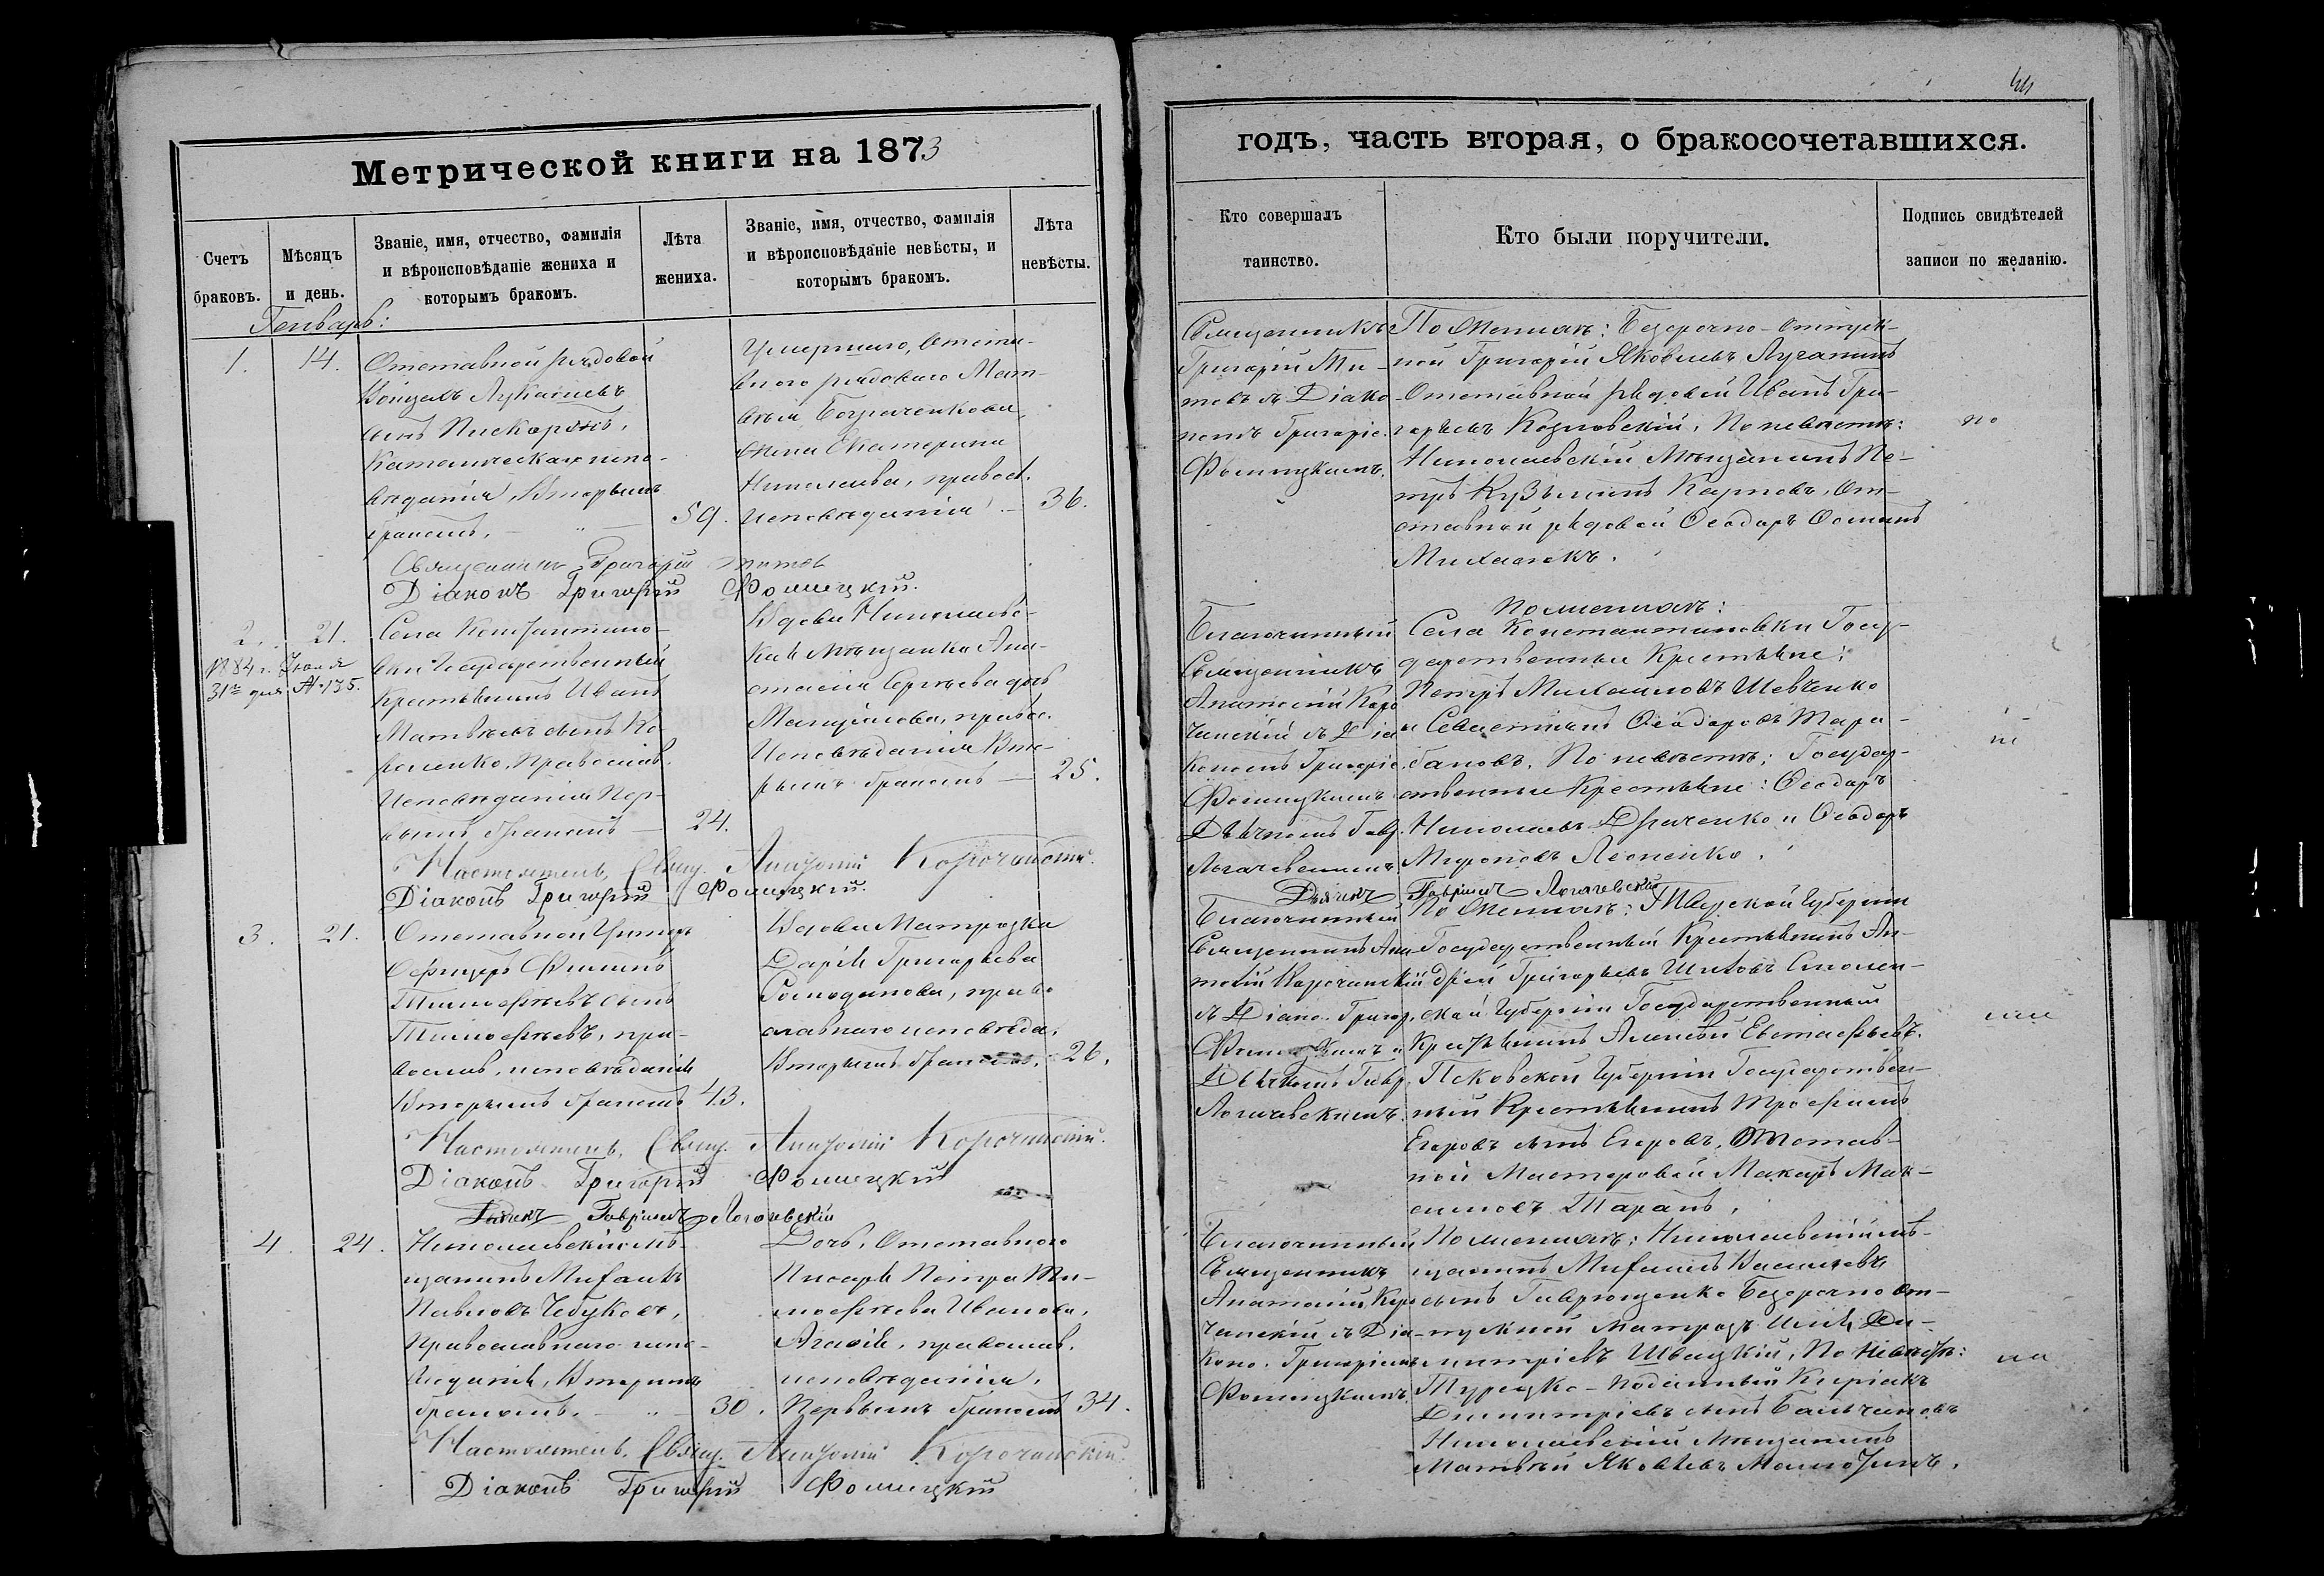 Метрической книги на 1873
Счетъ браковъ.
Мѣсяцъ и день.
Званіе, имя, отчество, фамилія и вѣроисповѣданіе жениха и которымъ бракомъ.
Лѣта жениха.
Званіе, имя, отчество, фамилія и вѣроисповѣданіе невѣсты, и которымъ бракомъ.
Лѣта невѣсты.
Генварь:
1.
14.
Отставной рядовой
Лукашевъ
сынъ Пискорскій,
Католическаго испо-
вѣданія, Вторымъ
бракомъ.
59.
Умершаго, Отста-
вного рядоваго Мат-
вѣя
жена Екатерина
Николаева, правосл.
исповѣданія
36.
Священникъ Григорій Титовъ
Діаконъ Григорій Фомицкій.
2.
21.
1884 г. Іюля
31го дня № 135.
Села Константино-
вки Государственный
Крестьянинъ Иванъ
Матвѣевъ сынъ Ко-
роленко, Православ.
Исповѣданія Пер-
вымъ бракомъ
24.
Вдова Николаевс-
кая Мѣщанка Ана-
стасія Сергѣева дочь
правос.
Исповѣданія Вто-
рымъ бракомъ
25.
Настоятель, Свящ. Анатолій Корочанскій.
Діаконъ Григорій Фомицкій.
3.
21.
Отставной Унтеръ
Офицеръ Филипъ
Тимофѣевъ сынъ
Тимофѣевъ, пра-
вослав. исповѣданія
Вторымъ бракомъ
43.
Вдова Матрозка
Дарія Григорьева
Господинова, право
славнаго исповѣда.
Вторымъ бракомъ.
26.
Настоятель, Свящ. Анатолій Корочанскій.
Діаконъ Григорій Фомицкій
Дьячекъ Гавріилъ Логачевскій
4.
24.
Николаевскій мѣ-
щанинъ Михаилъ
Павловъ Чебуковъ,
Православнаго испо-
вѣданія, Вторымъ
бракомъ.
30.
Дочь, Отставного
Писаря Петра Ти-
мофѣева Иванова,
Агафія, православ.
исповѣданія,
Первымъ бракомъ
34.
Настоятель, Свящ. Анатолій Корочанскій.
Діаконъ Григорій Фомицкій
годъ, часть вторая, о бракосочетавшихся.
Кто совершалъ таинство.
Кто были поручители.
Подпись свидѣтелей записи по желанію.
Священникъ
Григорій Ти-
товъ съ Діако-
номъ Григоріе.
Фомицкимъ.
По Женихѣ: Безсрочно-отпуск-
ной Григорій Яковлевъ Лучанинъ
Отставной рядовой Иванъ Гри-
горьевъ Козловскій, По невѣстѣ:
Николаевскій Мѣщанинъ Пе-
тръ Кузьминъ Карповъ, От-
ставной рядовой Ѳеодоръ Ѳоминъ
Благочинный
Священникъ
Анатолій Коро
чанскій съ Діа
кономъ Григоріе.
Фомицкимъ
Дьячкомъ Гавр.
Логачевскимъ
По женихѣ:
Села Константиновки Госу-
дарственные Крестьяне:
Петръ Михайловъ Шевченко
и Севастьянъ Ѳеодоровъ Тара-
бановъ, По невѣстѣ: Государ-
ственные Крестьяне: Ѳеодоръ
Николаевъ Драченко и Ѳеодоръ
Мироновъ Леоненко.
Дьячекъ Гавріилъ Логачевскій
Благочинный
Священникъ Ана-
толій Корочанскій
съ Діако. Григор.
Фомицкимъ и
Дьячкомъ Гавр.
Логачевскимъ.
По Женихѣ: Тверской Губерніи
Государственный Крестьянинъ Ан-
дрей Григорьевъ Шиловъ Смолен-
ской Губерніи Государственный
Крестьянинъ Алексѣй Евстафьевъ.
Псковской Губерніи Государствен-
ный Крестьянинъ Трофимъ
Егоровъ сынъ Егоровъ, Отстав-
ной Мастеровой Макаръ Мак-
симовъ Таранъ.
Благочинный
Священникъ
Анатолій Коро
чанскій съ Діа-
коно. Григоріемъ
Фомицкимъ.
По женихѣ: Николаевскій мѣ-
щанинъ Михаилъ Васильевъ
сынъ Гаврющенко Безсрочно от-
пускной матрозъ Илія Ди-
митріевъ Швецкій, По Невѣстѣ:
Турецко-подданный Киріакъ
Димитріевъ сынъ
Николаевскій Мѣщанинъ
Матвѣй Яковлевъ